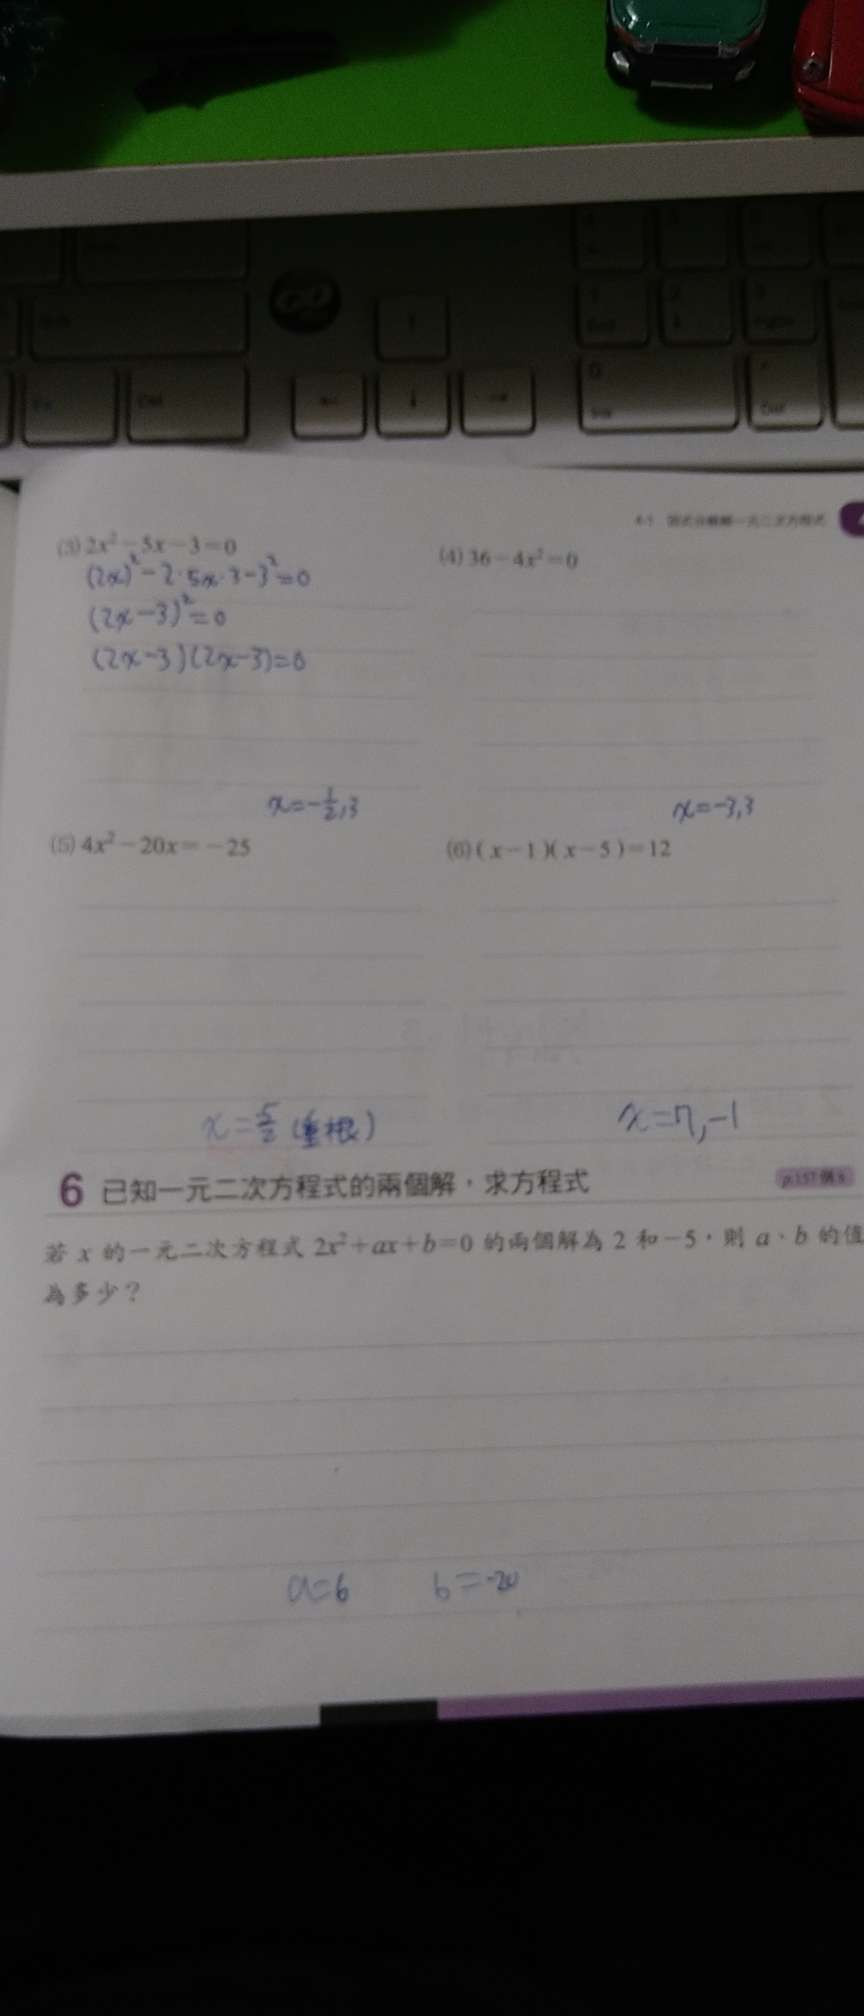 4-1 因式分解解一元二次方程式
(3) 2x²-5x-3=0
(2x)²-2·5x·3-3²=0
(2x-3)²=0
(2x-3)(2x-3)=0
x=-1/2,3
(4) 36-4x²=0
x=-3,3
(5) 4x²-20x=-25
x=5/2 (重根)
(6) (x-1)(x-5)=12
x=7,-1
6 已知一元二次方程式的兩個解，求方程式
p.157 例8
若 x 的一元二次方程式 2x²+ax+b=0 的兩個解為 2 和-5，則 a、b 的值
為多少？
a=6 b=-20